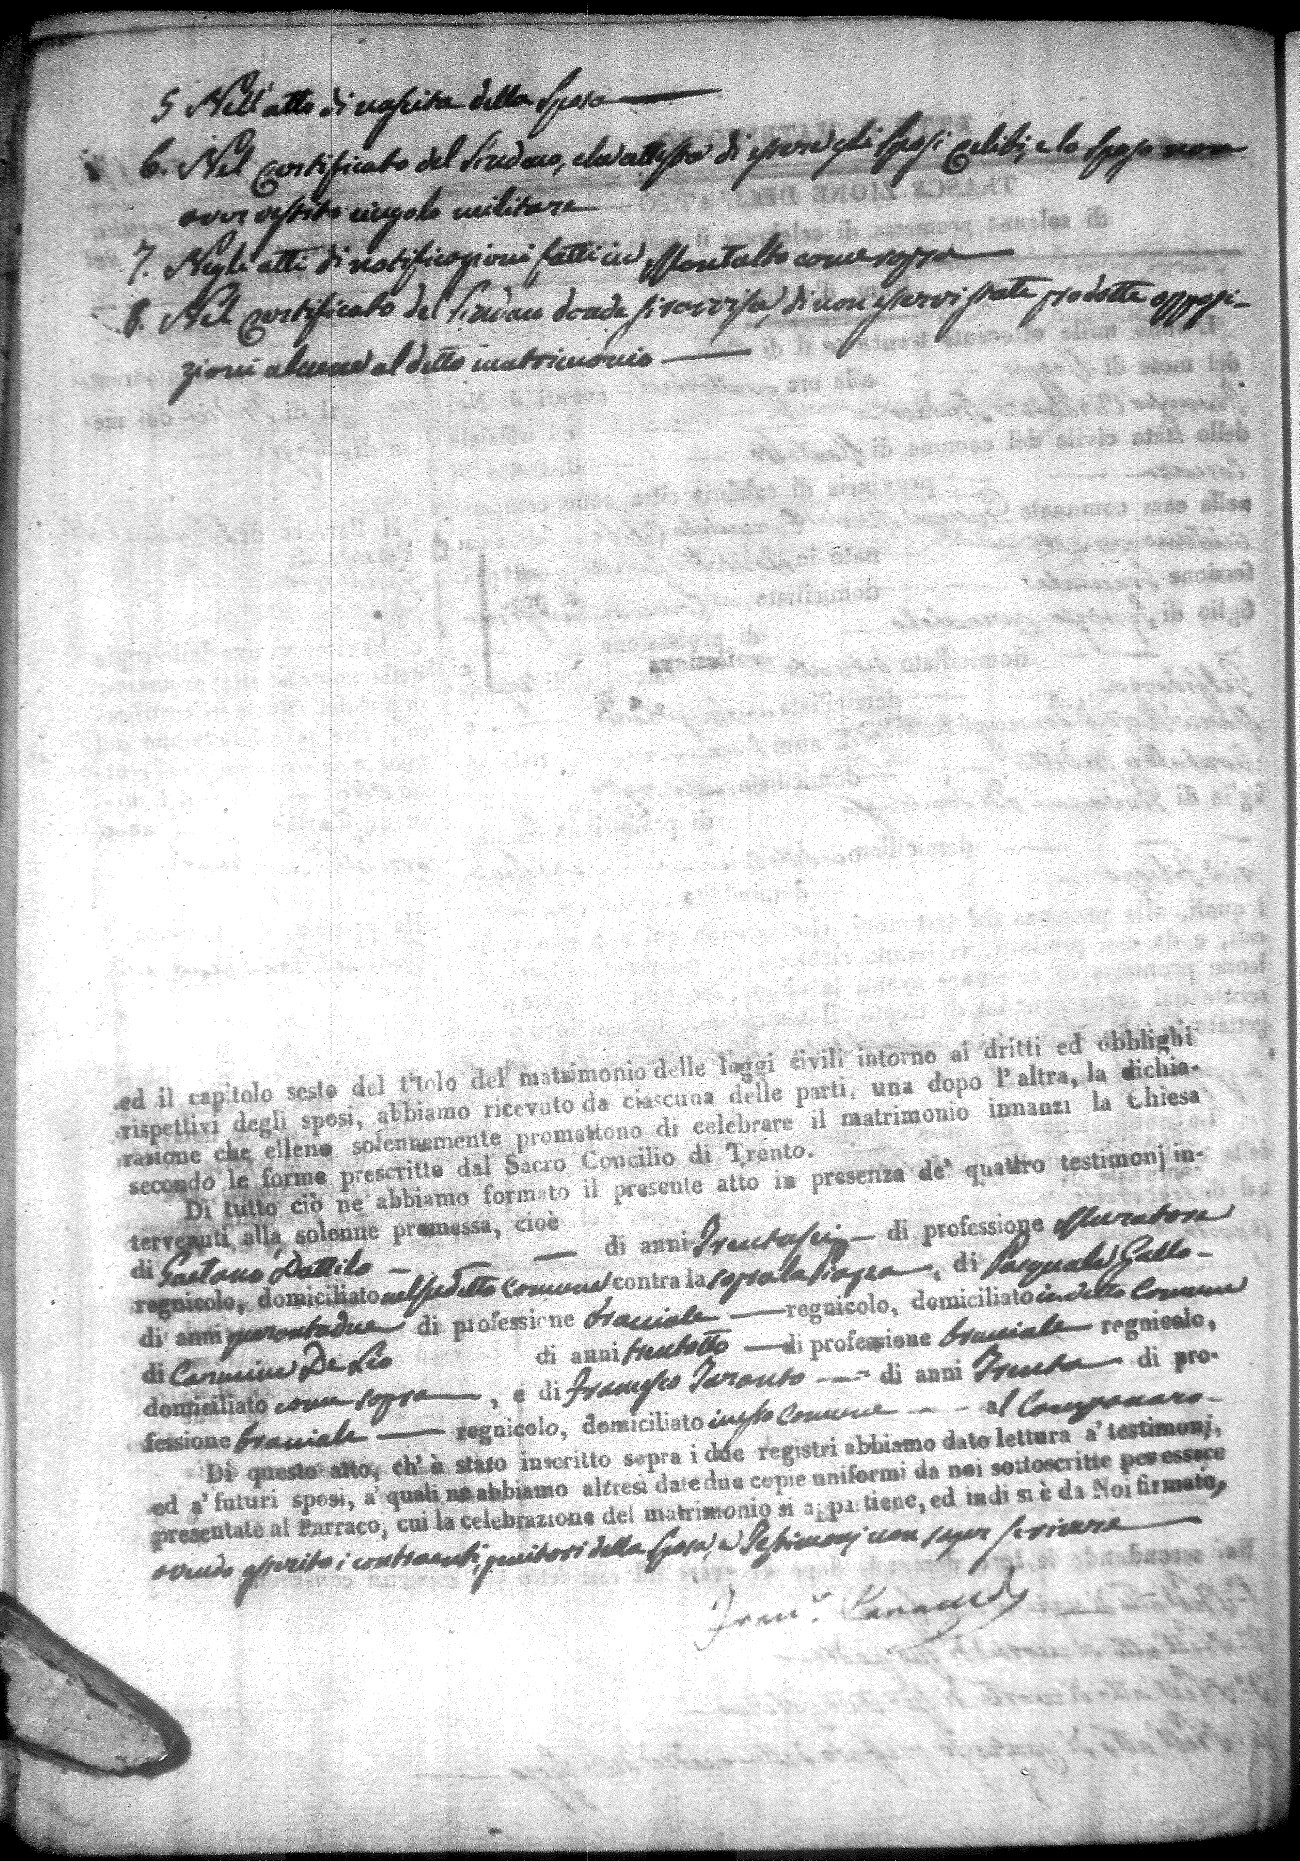 5 Nell'atto di nascita della Sposa
6. Nel certificato del Sindaco, che attesta di essere gli Sposi celibi, e lo Sposo non
aver vestito cingolo militare
7. Negli atti di notificazioni fatti in Montalto come sopra
8. Nel certificato del Sindaco donde si ravvisa, di non esservi state prodotte opposi-
zioni alcune al detto matrimonio
ed il capitolo sesto del titolo del matrimonio delle leggi civili intorno ai dritti ed obblighi
rispettivi degli sposi, abbiamo ricevuto da ciascuna delle parti, una dopo l'altra, la dichia-
razione che elleno solennemente promettono di celebrare il matrimonio innanzi la Chiesa
secondo le forme prescritte dal Sacro Concilio di Trento.
Di tutto ciò ne abbiamo formato il presente atto in presenza de' quattro testimonj in-
tervenuti alla solenne promessa, cioè
di Gaetano Dattilo di anni Trentasei di professione Muratore
regnicolo, domiciliato nel suddetto Comune contra la sopra la piazza, di Pasquale Gallo
di anni quarantadue di professione bracciale regnicolo, domiciliato in detto Comune
di Carmine De Leo di anni trentotto di professione bracciale regnicolo,
domiciliato come sopra, e di Francesco Taranto di anni Trenta di pro-
fessione bracciale regnicolo, domiciliato in esto Comune al Campanaro
Di questo atto, ch'è stato inscritto sopra i due registri abbiamo dato lettura a' testimonj,
ed a' futuri sposi, a' quali ne abbiamo altresì date due copie uniformi da noi sottoscritte per essere
presentate al Parraco, cui la celebrazione del matrimonio si appartiene, ed indi si è da Noi firmato,
avendo asserito i contraenti, genitori della Sposa, e Testimonj non saper scrivere